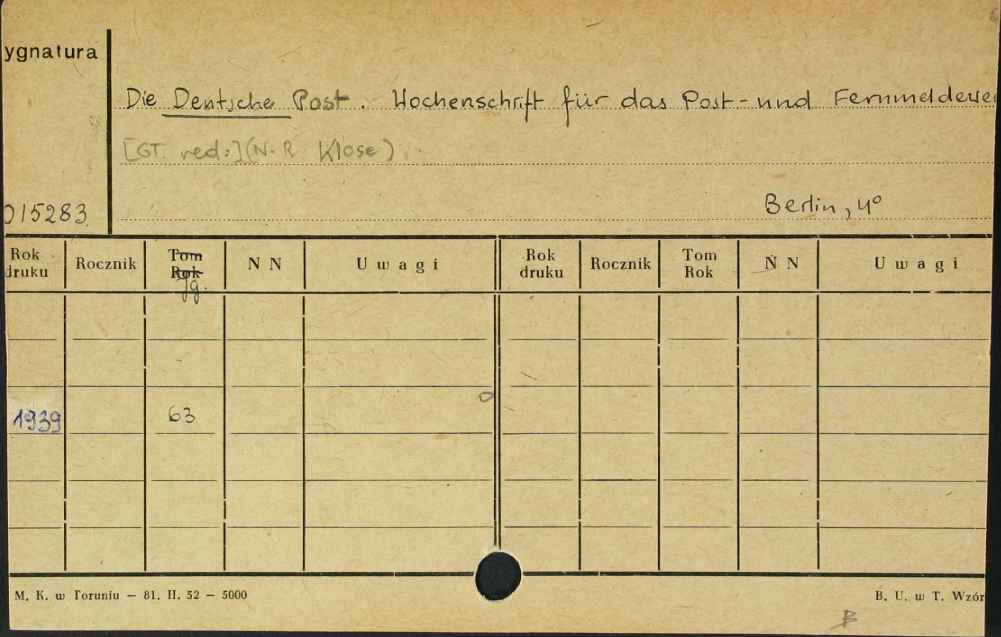 ygnatura
Die Deutsche Post. Wochenschrift für das Post- und Fernmeldewe
[GT. red:] (N. R. Klose)
015283
Berlin, 4°
Rok druku Rocznik Tom Rok Jg. N N Uwagi Rok druku Rocznik Tom Rok N N Uwagi
1939 63
M. K. w Toruniu — 81. II. 52 — 5000 B. U. w T. Wzór
B